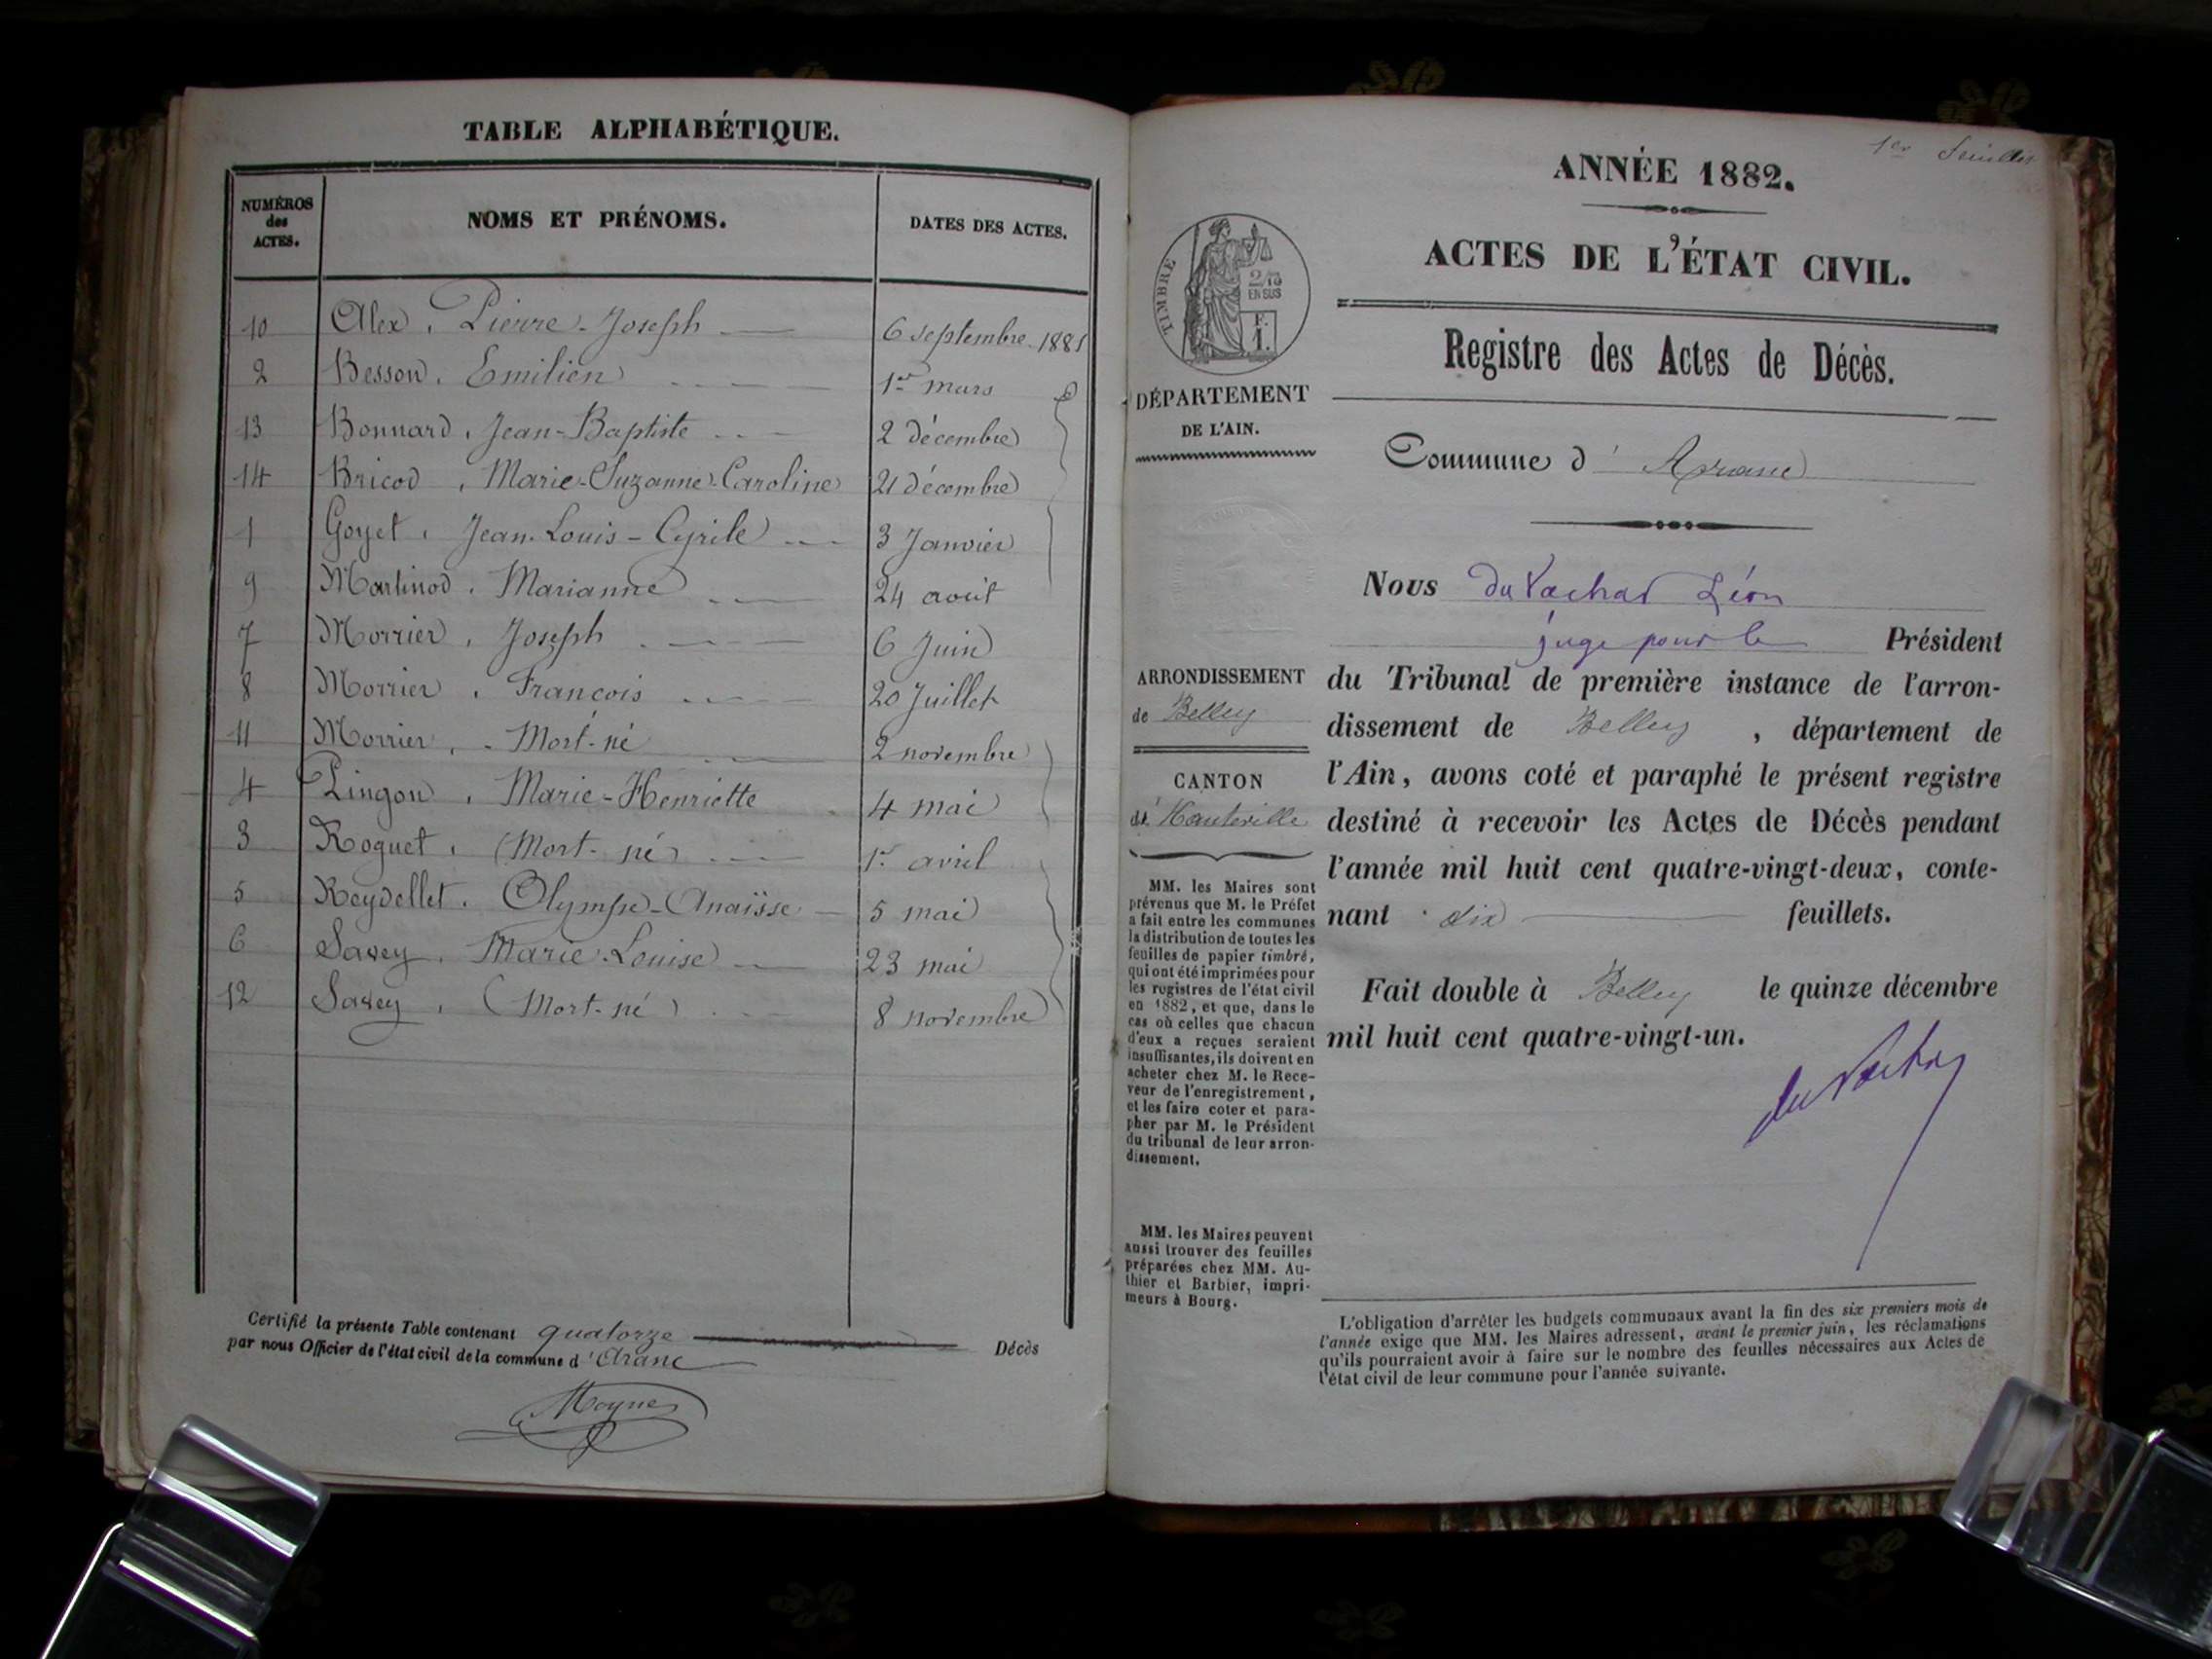 TABLE ALPHABÉTIQUE.
NUMÉROS des ACTES. NOMS ET PRÉNOMS. DATES DES ACTES.
10 Alex, Pierre-Joseph 6 septembre 1881
2 Besson, Emilien 1er mars
13 Bonnard, Jean-Baptiste 2 décembre
14 Bricod, Marie-Suzanne-Caroline 21 décembre
1 Goyet, Jean-Louis-Cyrile 3 Janvier
9 Martinod, Marianne 24 août
7 Morrier, Joseph 6 Juin
8 Morrier, François 20 Juillet
11 Morrier, - Mort-né 2 novembre
4 Pingon, Marie-Henriette 4 mai
3 Roguet, (Mort-né) 1er avril
5 Reydellet, Olympe-Anaïsse 5 mai
6 Savey, Marie-Louise 23 mai
12 Savey, (Mort-né) 8 novembre
Certifié la présente Table contenant quatorze Décès
par nous Officier de l'état civil de la commune d'Arane
Moyne
1er feuillet
ANNÉE 1882.
ACTES DE L'ÉTAT CIVIL.
TIMBRE
2/10
EN SUS
F.
1.
Registre des Actes de Décès.
DÉPARTEMENT
DE L'AIN.
Commune d' Arane
Nous du Vachat Léon
juge pour le Président
ARRONDISSEMENT
de Belley
CANTON
d'Hauteville
du Tribunal de première instance de l'arron-
dissement de Belley, département de
l'Ain, avons coté et paraphé le présent registre
destiné à recevoir les Actes de Décès pendant
l'année mil huit cent quatre-vingt-deux, conte-
nant dix feuillets.
Fait double à Belley le quinze décembre
mil huit cent quatre-vingt-un.
du Vachat
MM. les Maires sont
prévenus que M. le Préfet
a fait entre les communes
la distribution de toutes les
feuilles de papier timbré,
qui ont été imprimées pour
les registres de l'état civil
en 1882, et que, dans le
cas où celles que chacun
d'eux a reçues seraient
insuffisantes, ils doivent en
acheter chez M. le Rece-
veur de l'enregistrement,
et les faire coter et para-
pher par M. le Président
du tribunal de leur arron-
dissement.
MM. les Maires peuvent
aussi trouver des feuilles
préparées chez MM. Au-
thier et Barbier, impri-
meurs à Bourg.
L'obligation d'arrêter les budgets communaux avant la fin des six premiers mois de
l'année exige que MM. les Maires adressent, avant le premier juin, les réclamations
qu'ils pourraient avoir à faire sur le nombre des feuilles nécessaires aux Actes de
l'état civil de leur commune pour l'année suivante.